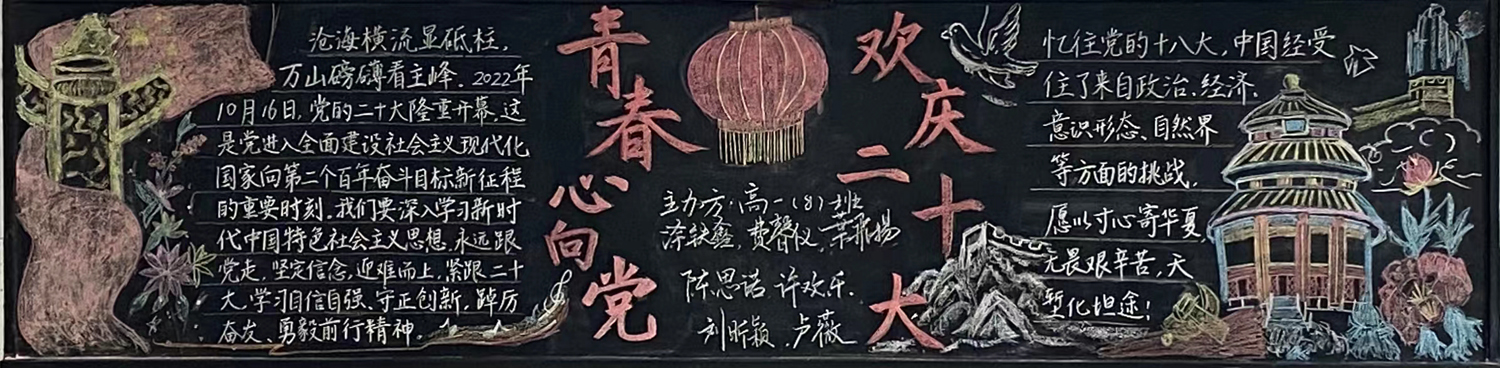 沧海横流显砥柱，
万山磅礴看主峰．2022年
10月16日，党的二十大隆重开幕．这
是党进入全面建设社会主义现代化
国家向第二个百年奋斗目标新征程
的重要时刻．我们要深入学习新时
代中国特色社会主义思想，永远跟
党走，坚定信念，迎难而上，紧跟二十
大，学习自信自强、守正创新，踔厉
奋发、勇毅前行精神．
青春心向党
主办方：高一（8）班
费馨仪
陈思诺 许欢乐．
刘昕颖．卢薇
欢庆二十大
忆往党的十八大，中国经受
住了来自政治、经济、
意识形态、自然界
等方面的挑战，
愿以寸心寄华夏，
无畏艰辛苦，天
堑化坦途！